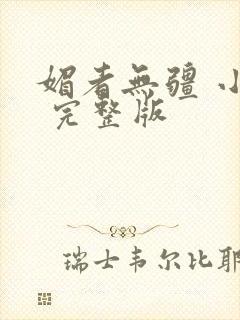 媚者無疆 小
完整版
瑞士韦尔比耶